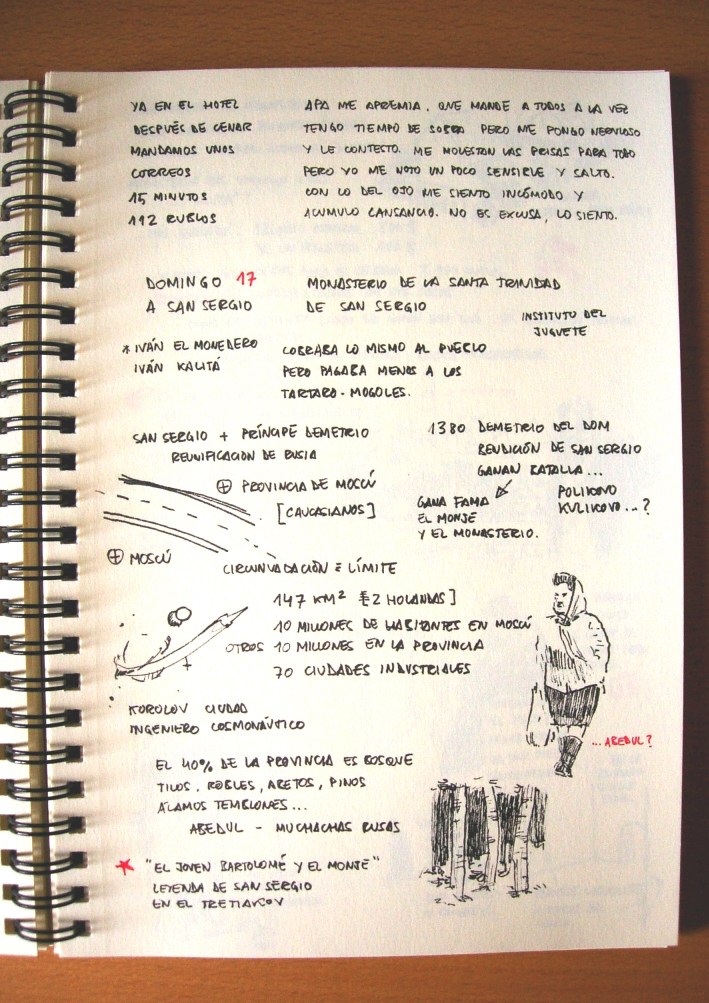 YA EN EL HOTEL
DESPUÉS DE CENAR
MANDAMOS UNOS
CORREOS
15 MINUTOS
112 RUBLOS
APA ME APREMIA. QUE MANDE A TODOS A LA VEZ
TENGO TIEMPO DE SOBRA PERO ME PONGO NERVIOSO
Y LE CONTESTO. ME MOLESTAN LAS PRISAS PARA TODO
PERO YO ME NOTO UN POCO SENSIBLE Y SALTO.
CON LO DEL OJO ME SIENTO INCÓMODO Y
ACUMULO CANSANCIO. NO ES EXCUSA, LO SIENTO.
DOMINGO 17
A SAN SERGIO
MONASTERIO DE LA SANTA TRINIDAD
DE SAN SERGIO
INSTITUTO DEL
JUGUETE
* IVÁN EL MONEDERO
IVÁN KALITÁ
COBRABA LO MISMO AL PUEBLO
PERO PAGABA MENOS A LOS
TARTARO-MOGOLES.
SAN SERGIO + PRÍNCIPE DEMETRIO
REUNIFICACIÓN DE RUSIA
1380 DEMETRIO DEL DOM
BENDICIÓN DE SAN SERGIO
GANAN BATALLA...
POLIKOVO
KULIKOVO...?
GANA FAMA
EL MONJE
Y EL MONASTERIO.
PROVINCIA DE MOSCÚ
[CAUCASIANOS]
MOSCÚ
CIRCUNVALACIÓN = LÍMITE
147 KM² [=2 HOLANDAS]
10 MILLONES DE HABITANTES EN MOSCÚ
OTROS 10 MILLONES EN LA PROVINCIA
70 CIUDADES INDUSTRIALES
KOROLOV CIUDAD
INGENIERO COSMONAÚTICO
EL 40% DE LA PROVINCIA ES BOSQUE
TILOS, ROBLES, ABETOS, PINOS
ÁLAMOS TEMBLONES...
ABEDUL - MUCHACHAS RUSAS
...ABEDUL?
"EL JOVEN BARTOLOMÉ Y EL MONJE"
LEYENDA DE SAN SERGIO
EN EL TRETIAKOV